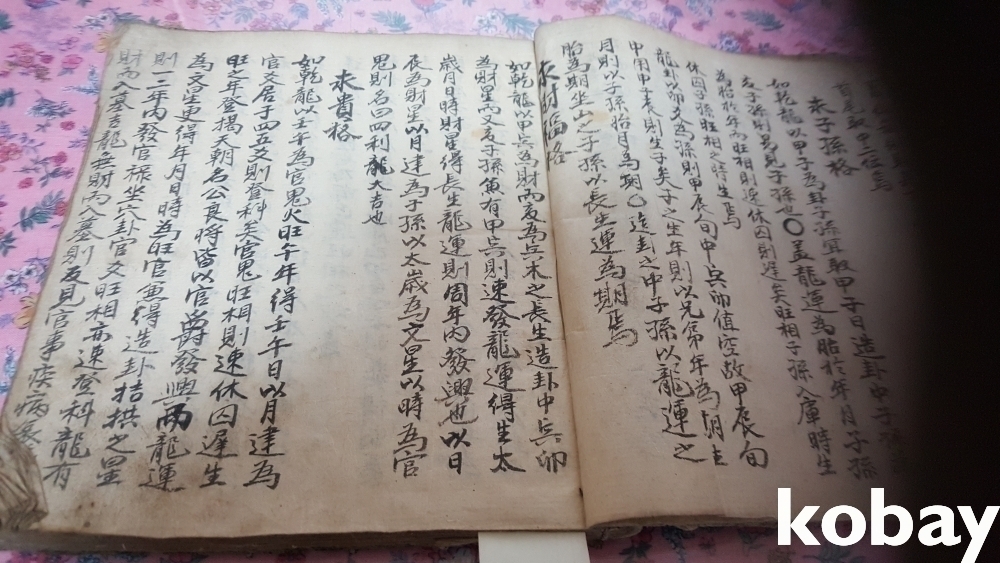 求子孫格
如乾龍以甲子為卦子孫宜取甲子日造卦中子
子孫則易見子孫也〇盖龍運為胎於年月子孫
為胎於年内旺相則速休囚則遲矣旺相子孫入庫時生
休囚子孫旺相之時生焉
龍卦以卯爻為添則甲辰旬中兵卯值空故甲辰旬
中用甲子矣則生子矣子之生年則以兄弟年為期生
月則以子孫胎月為期〇造卦之中子孫以龍運之
胎為期坐山之子孫以長生運為期焉
求財福格
如乾龍以甲兵為財而亥為兵木之長生造卦中兵卯
為財星而又亥子孫兼有甲兵則速發龍運得生太
歲月日時財星得長生龍運則周年内發興也以日
辰為財星以月建為子孫以太歲為文星以時為官
鬼則名曰四利龍大吉也
求貴格
如乾龍以壬午為官鬼火旺午年得壬午日以月建為
官爻居于四五爻則登科矣官鬼旺相則速休囚遲生
旺之年登揭天朝名公良將皆以官爵發興而龍運
為文星更得年月日時為旺官兼得造卦拮拱之星
則一二年内發官祿坐穴卦官爻旺相亦速登科龍有
財而入墓去龍無財而入墓則反見官事疾病
kobay